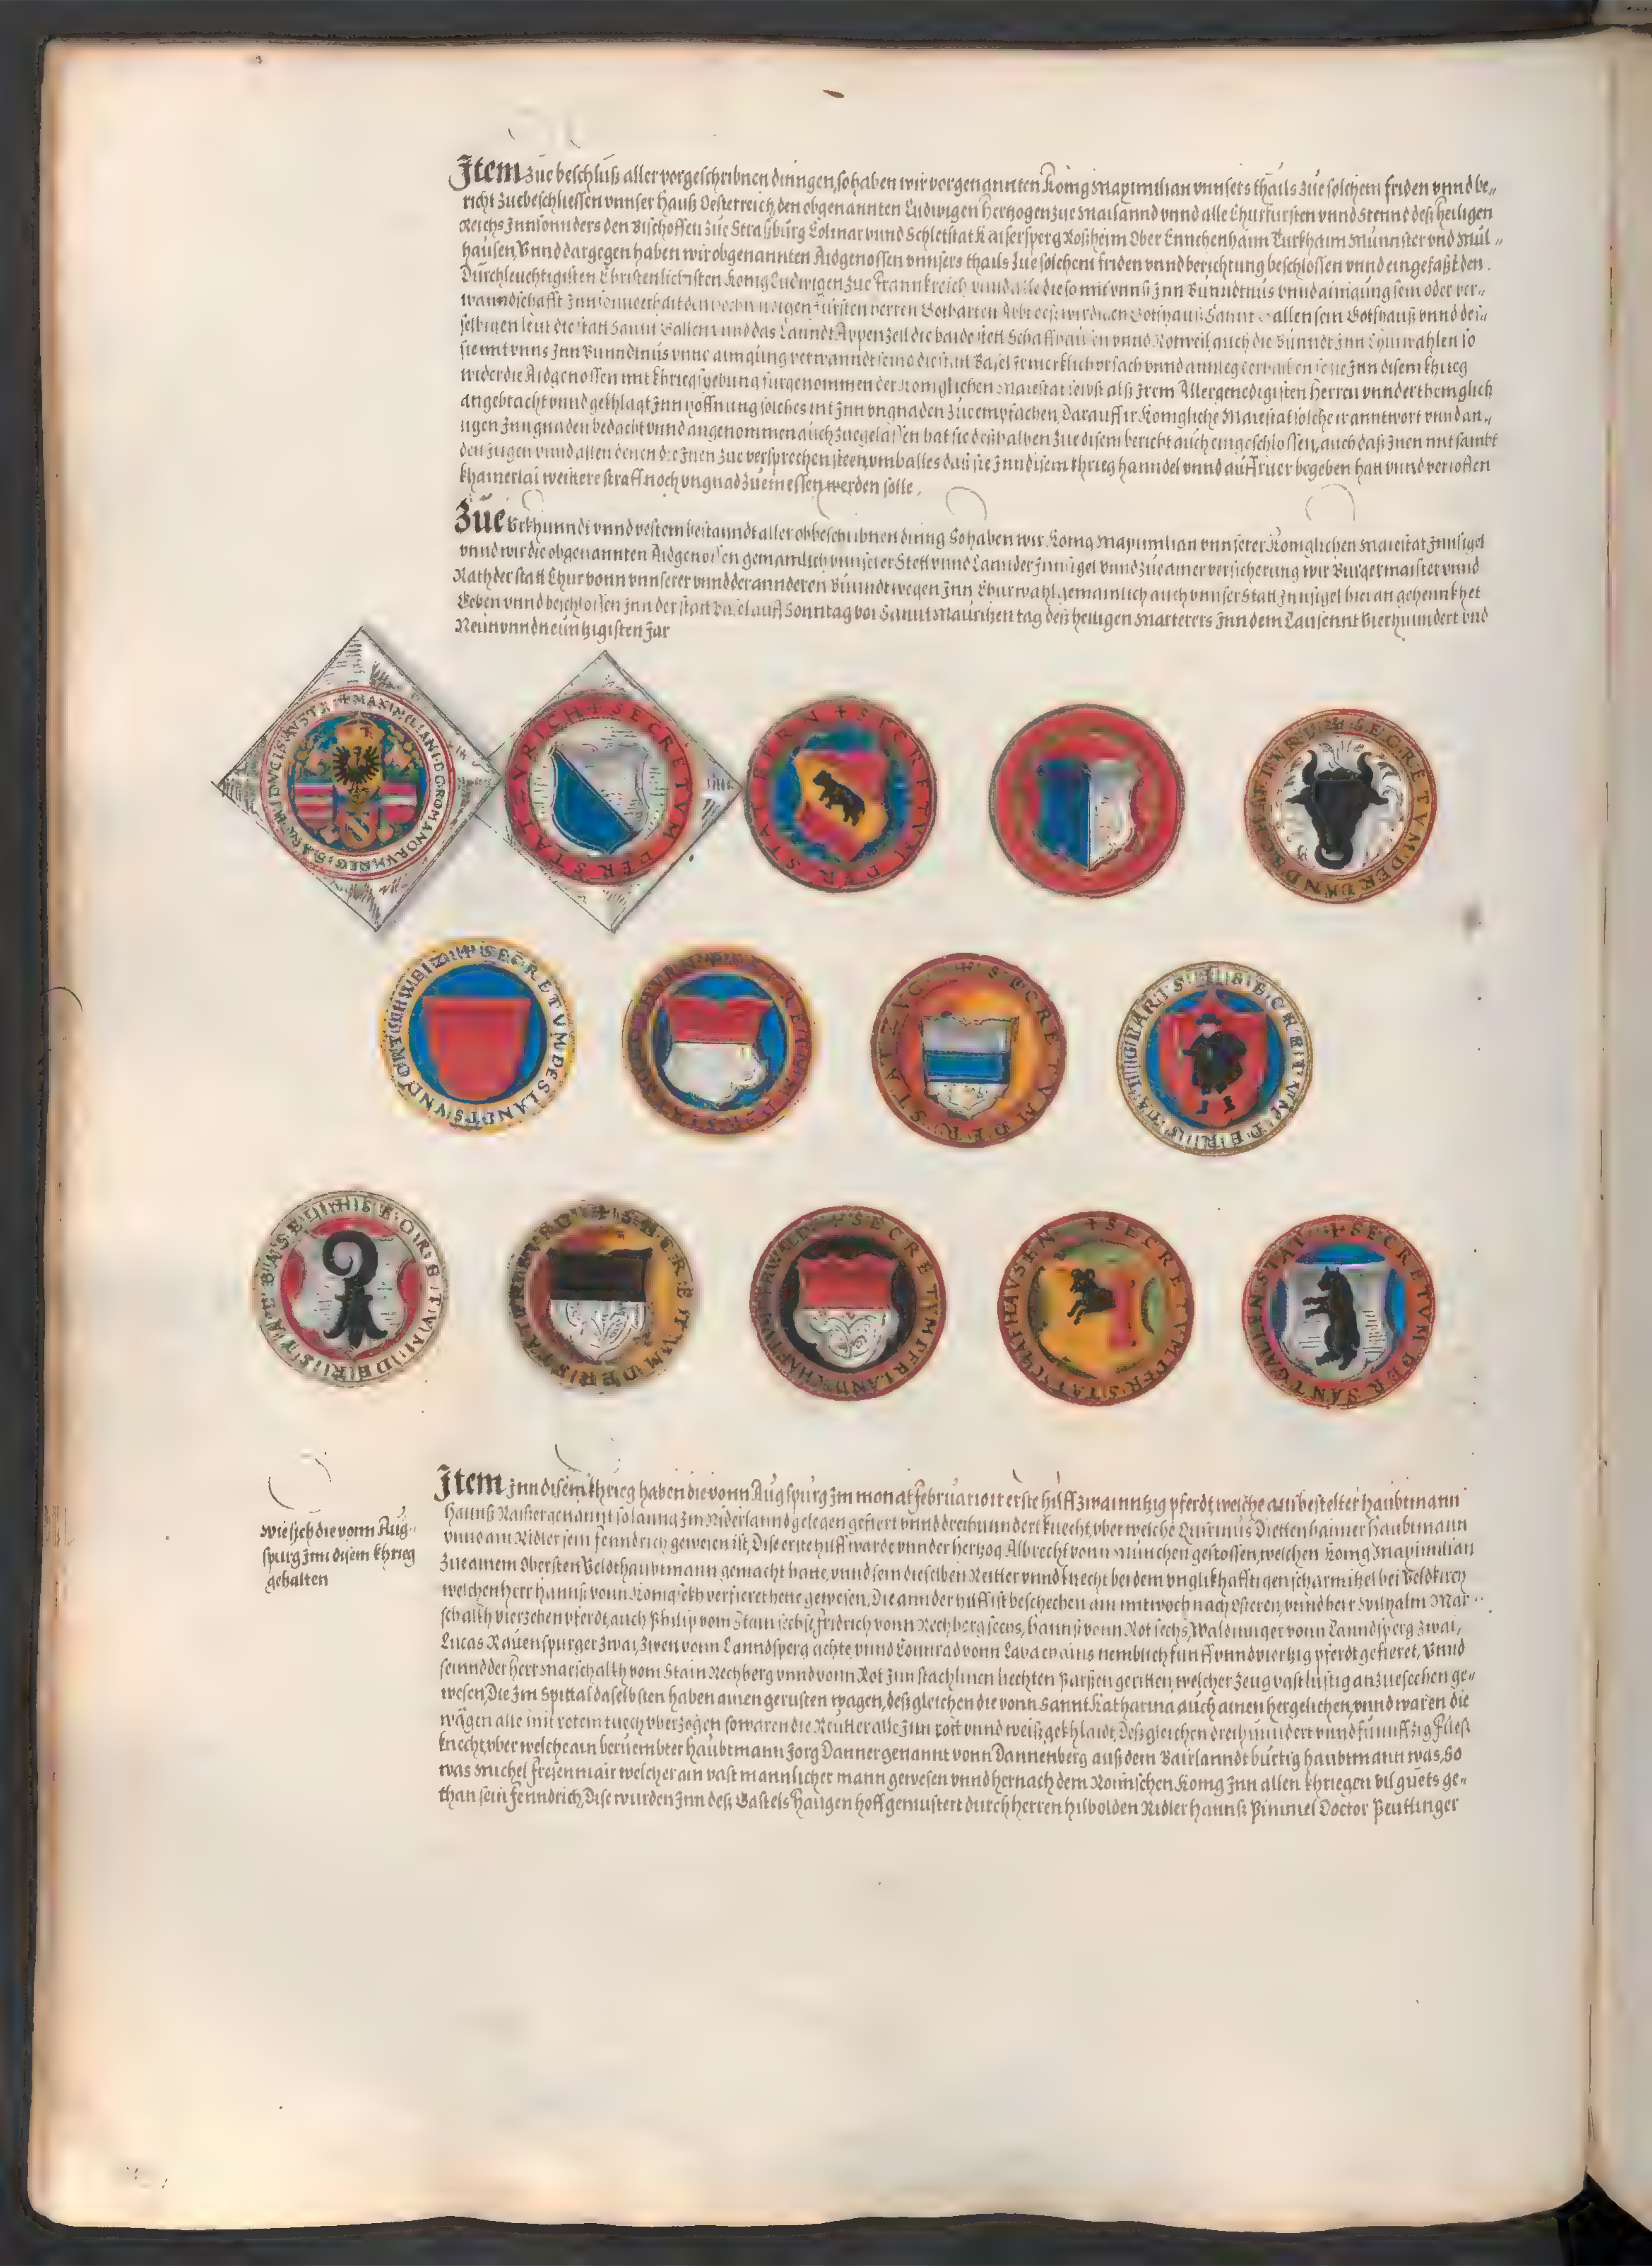 Item zue beschluß aller vorgeschribnen dinngen, so haben wir vorgenannten Konig Maximilian vnnsers thails zue solchem friden vnnd be„
richt zuebeschliessen vnnser Hauß Oesterreich, den obgenannten Ludwigen Hertzogen zue Mailannd vnnd alle Churfursten vnnd Stennd deß heiligen
Reichs Innsonnders den Bischoffen zue Straßburg Colmar vnnd Schletstat Kaisersperg Roßheim Ober Ennehenhaim Turkhaim Munnster vnd Mül„
hausen, Vnnd dargegen haben wir obgenannten Aidgenossen vnnsers thails zue solchem friden vnnd berichtung beschlossen vnnd eingefaßt den
Durchleuchtigisten Christenlichisten Konig Ludwigen zue Frannkreich vnnd alle die so mit vnns Inn Bunndtnus vnnd ainigung sein oder ver„
wanndschafft Inn
selbigen leut die statt Sannt Gallenn vnnd das Lanndt Appenzell die baide stett Schaffhausen vnnd Rotweil, auch die Bünndt Inn Churwahlen so
sie mit vnns Inn Bunndtnus vnnd ainigung verwanndt seind die statt Basel Ir merklich vrsach vnnd anlieg derhalben sie sie Inn disem khrieg
wider die Aidgenossen mit khriegsyebung fürgenommen der Koniglichen Maiestat selbst alß Irem Allergenedigisten Herren vnnderthenglich
angebracht vnnd gekhlagt Inn hoffnung solches nit Inn vngnaden zue empfachen, Darauff ir Konigliche Maiestat solche ir anntwort vnnd an„
ligen Inn gnaden bedacht vnnd angenommen auch zuegelassen hat sie deßhalben zue disem bericht auch eingeschlossen, auch daß Inen mit sambt
den Iugen vnnd allen denen die Inen zue versprechen steen, vmb alles daß sie Inn disem khrieg hanndel vnnd auffruer begeben hatt vnnd verloffen
khainerlai weittere straff noch vngnad zuemessen werden solle.
Zue Vrkhunndt vnnd vestem bestanndt aller obbeschribnen dinng So haben wir Konig Maximilian vnnserer Koniglichen Maiestat Innsigel
vnnd wir die obgenannten Aidgenossen gemainlich vnnserer Stett vnnd Lannder Innsigel vnnd zue ainer versicherung wir Burgermaister vnnd
Rath der statt Chur vonn vnnserer vnnd der annderen Bünndt wegen Inn Churwahl gemainlich auch vnnser Statt Innsigel hieran gehennkhet
Geben vnnd beschlossen Inn der statt Basel auff Sonntag vor Sannt Mauritzen tag deß heiligen Marterers Inn dem Tausennt Vierhunndert vnd
Neun vnnd neuntzigisten Jar
+ MAXIMILIANI D G ROMANORVM REGIS ARCHIDVCIS AVSTA
+ SECRETVM DER STAT ZVRICH
+ SECRETVM DER STAT BERN
SECRETVM DER LANDSCHAFT VRI
+ SECRETVM DES LANDTS VND ORT SCHWEIZ
SECRETVM DER STAT
+ SECRETVM DER STAT ZVG
SECRETVM DER STAT GLARIS
SECRETVM DER STAT BASEL
+ SECRETVM DER STAT FREIBVRG
+ SECRETVM DER LANDSCHAFT
+ SECRETVM DER STAT SCHAFHAVSEN
+ SECRETVM DER SANT GALLEN STAT
wie sich die vonn Aug„
spurg Inn disem khrieg
gehalten
Item Inn disem khrieg haben die vonn Augspurg Im monat Februario ir erste hilff zwainntzig pferdt, welche ain bestelter haubtmann
Hannß Raißer genannt so lanng Im Niderlannd gelegen gefiert vnnd dreihunndert knecht, vber welche Quirinus Diettenhaimer haubtmann
vnnd am Ridler sein fenndrich gewesen ist, Dise erste hilff warde vnnder hertzog Albrecht vonn München gestossen, welchen Konig Maximilian
zue ainem Obersten Veldthaubtmann gemacht hatte, vnnd sein dieselben Reitter vnnd knecht bei dem vnglikhafftigen scharmitzel bei Veldkirch
welchen herr Hannß vonn Konigsekh verfieret hette gewesen, Die annder hilff ist beschechen am mitwoch nach Osteren, vnnd herr Wilhalm Mar„
schalkh vierzehen pferdt, auch Philip vom Stain sechs, Fridrich vonn Rechberg sechs, Hannß vonn Rot sechs, Waldinnger vonn Lanndsperg zwai,
Lucas Rauenspurger zwai, zwen vonn Lanndsperg achte vnnd Connrad vonn ains nemblich funff vnnd viertzig pferdt gefieret, Vnnd
seinnd der herr Marschalkh vom Stain Rechberg vnnd vonn Rot Inn stachlinen liechten Parßen geritten, welcher zeug vast lustig anzuesechen ge„
wesen, Die Im Spittal daselbsten haben ainen gerusten wagen, deßgleichen die vonn Sannt Katharina auch ainen hergelichen, vnnd waren die
wägen alle mit rotem tuech vberzogen so waren die Reutter alle Inn rott vnnd weiß gekhlaidt, Deßgleichen dreihunndert vnnd funnffzig Fueß
knecht, vber welche ain beruembter haubtmann Jorg Danner genannt vonn Dannenberg auß dem Bairlanndt burtig haubtmann was, So
was Michel Freienmair welcher ain vast mannlicher mann gewesen vnnd hernach dem Romischen Konig Inn allen khriegen vil guets ge„
than sein fenndrich, Dise wurden Inn deß Gastels Haugen hoff gemustert durch herren Hilbolden Ridler Hannß Pimmel Doctor Peuttinger